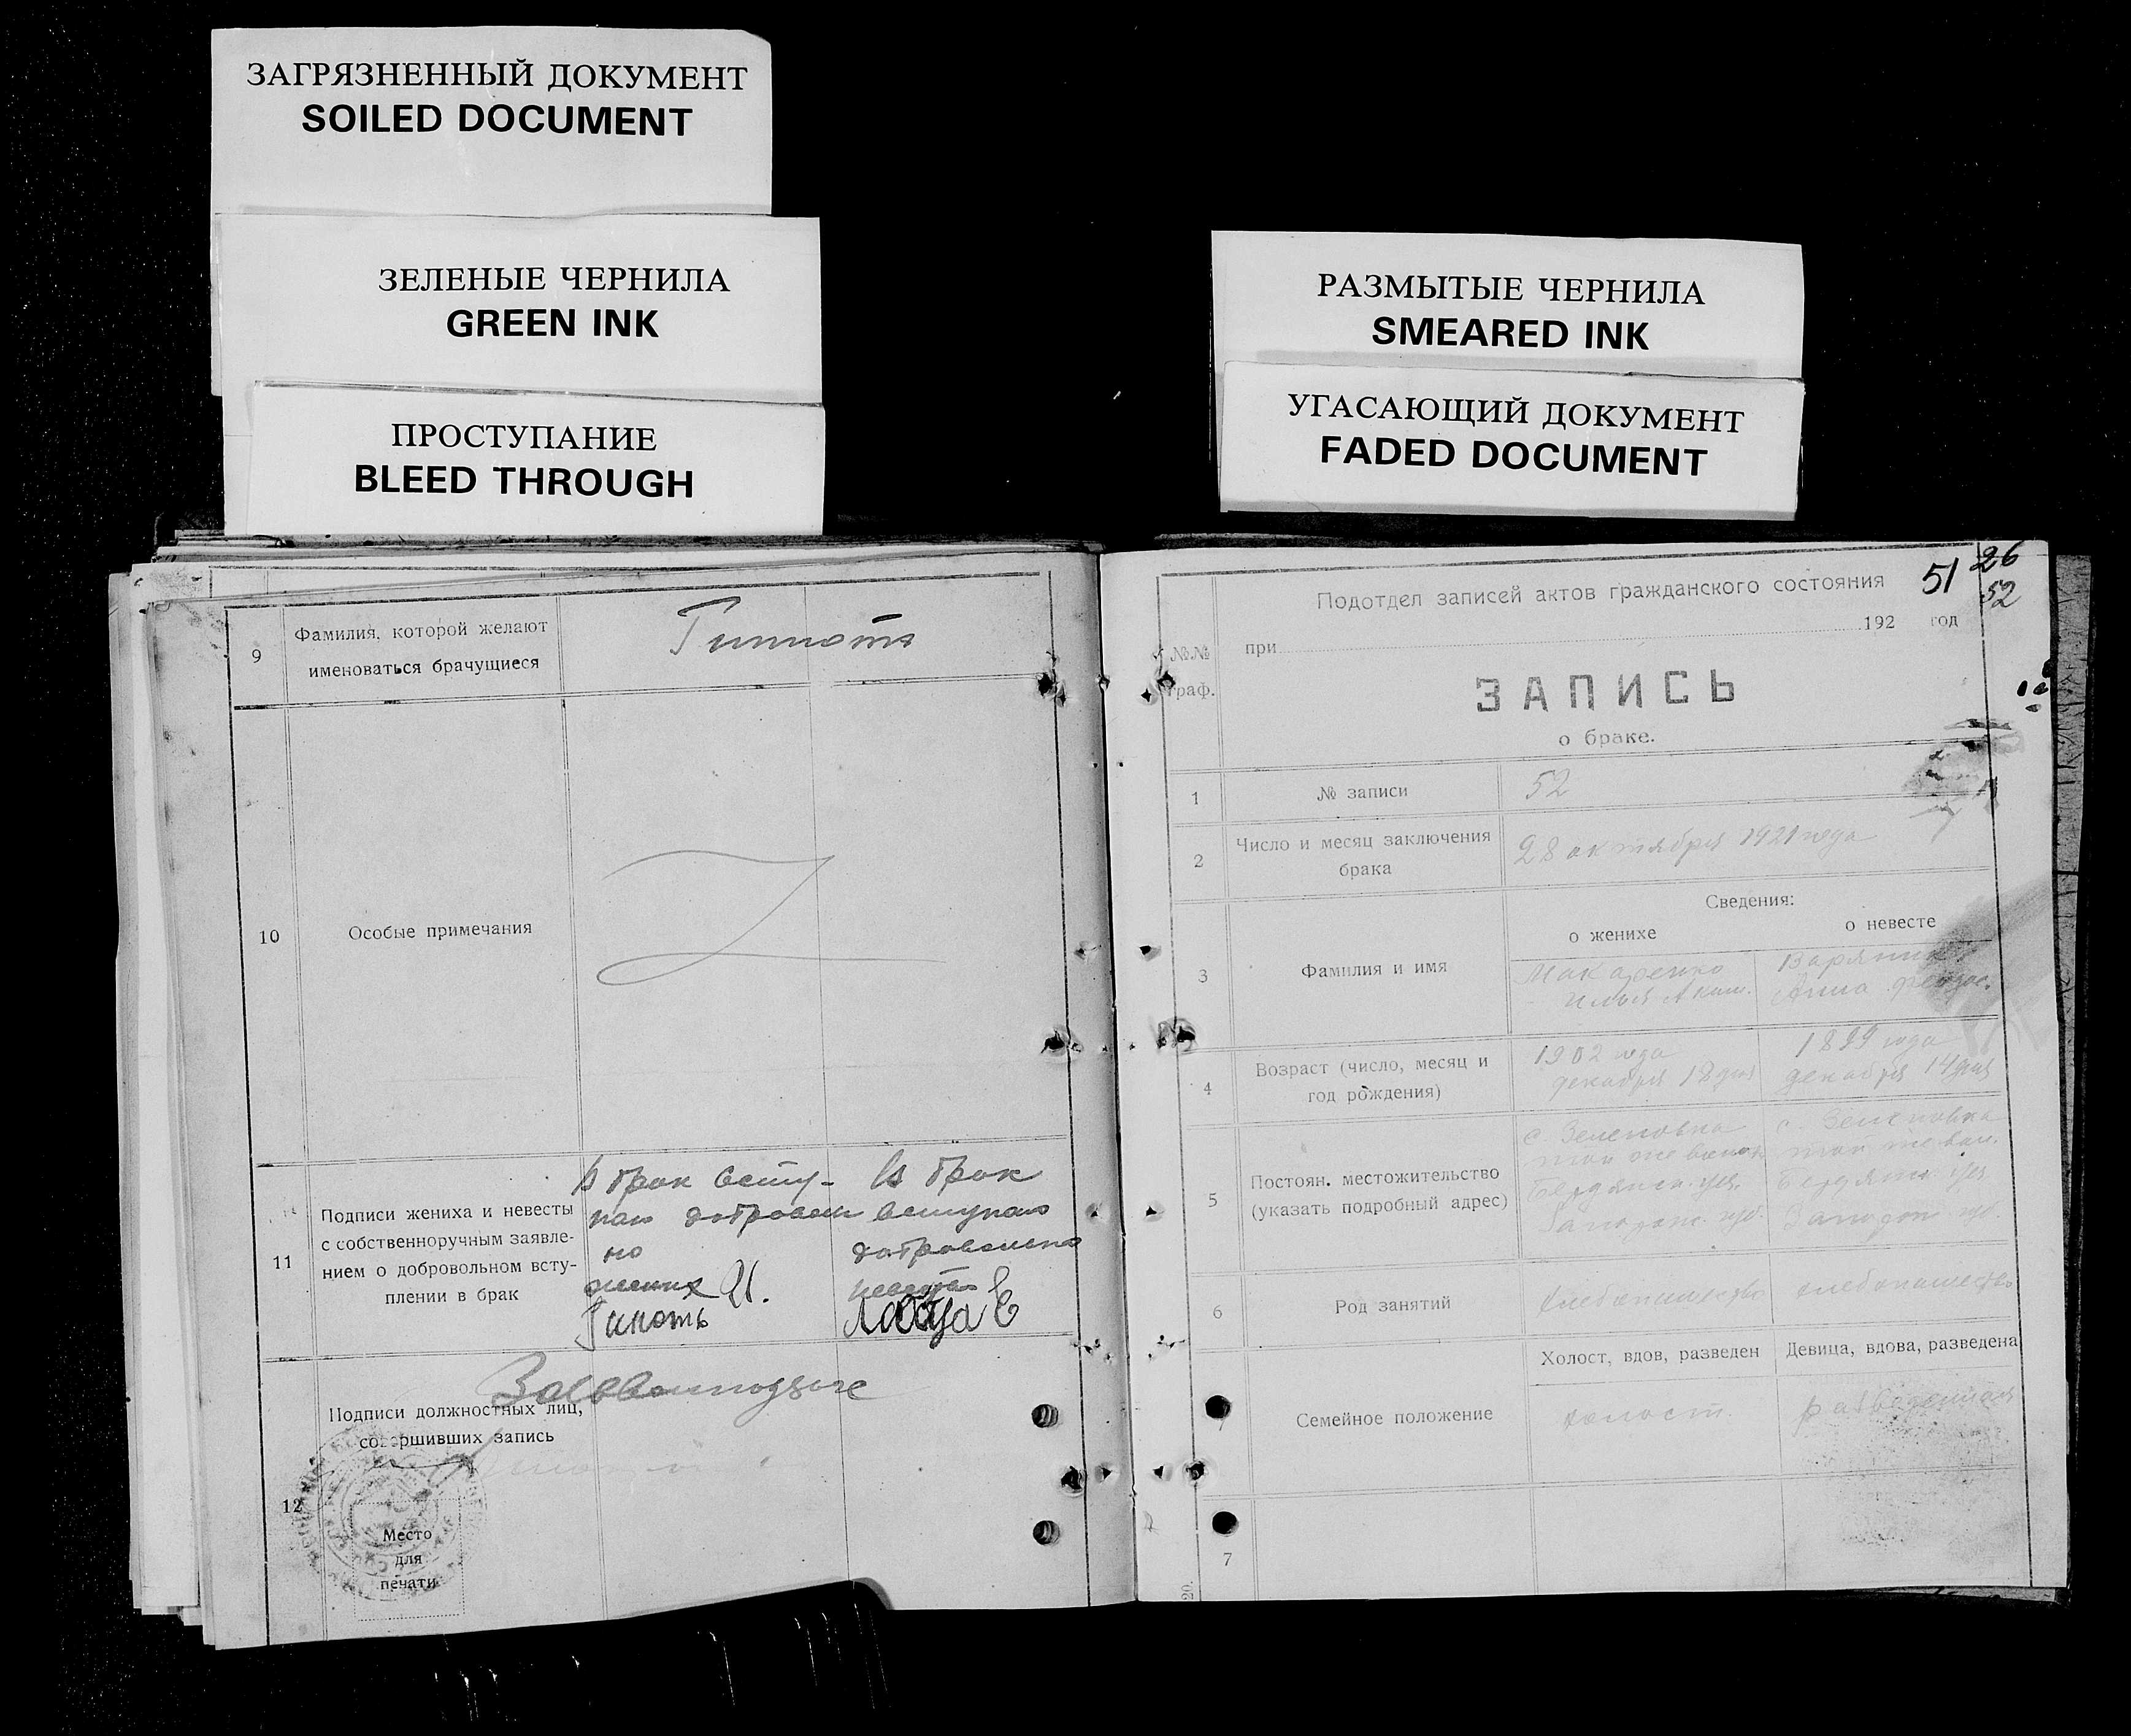 ЗАГРЯЗНЕННЫЙ ДОКУМЕНТ
SOILED DOCUMENT
ЗЕЛЕНЫЕ ЧЕРНИЛА
GREEN INK
ПРОСТУПАНИЕ
BLEED THROUGH
РАЗМЫТЫЕ ЧЕРНИЛА
SMEARED INK
УГАСАЮЩИЙ ДОКУМЕНТ
FADED DOCUMENT
9
Фамилия, которой желают
именоваться брачущиеся
10
Особые примечания
11
Подписи жениха и невесты
с собственноручным заявле-
нием о добровольном всту-
плении в брак
В брак всту-
паю
но
жених
В брак
вступаю
добровольно
невеста
12
Подписи должностных лиц,
совершивших запись
Место
для
печати
51
26
52
Подотдел записей актов гражданского состояния
при 192 год
№№
граф.
ЗАПИСЬ
о браке.
1
№ записи
52
2
Число и месяц заключения
брака
28 октября 1921 года
3
Фамилия и имя
Сведения:
о женихе
о невесте
Макаренко
Илья Аким.
Анна
4
Возраст (число, месяц и
год рождения)
1902 года
декабря 18 дня
1899 года
декабря 14 дня
5
Постоян. местожительство
(указать подробный адрес)
с. Зеленовка
той же волос.
Бердянск. уез.
Запорож. губ.
с. Зеленовка
той же вол.
Бердянск. уез.
Запорож. губ.
6
Род занятий
хлебопашество
хлебопашество
Семейное положение
Холост, вдов, разведен
Девица, вдова, разведена
холост
разведенная
7